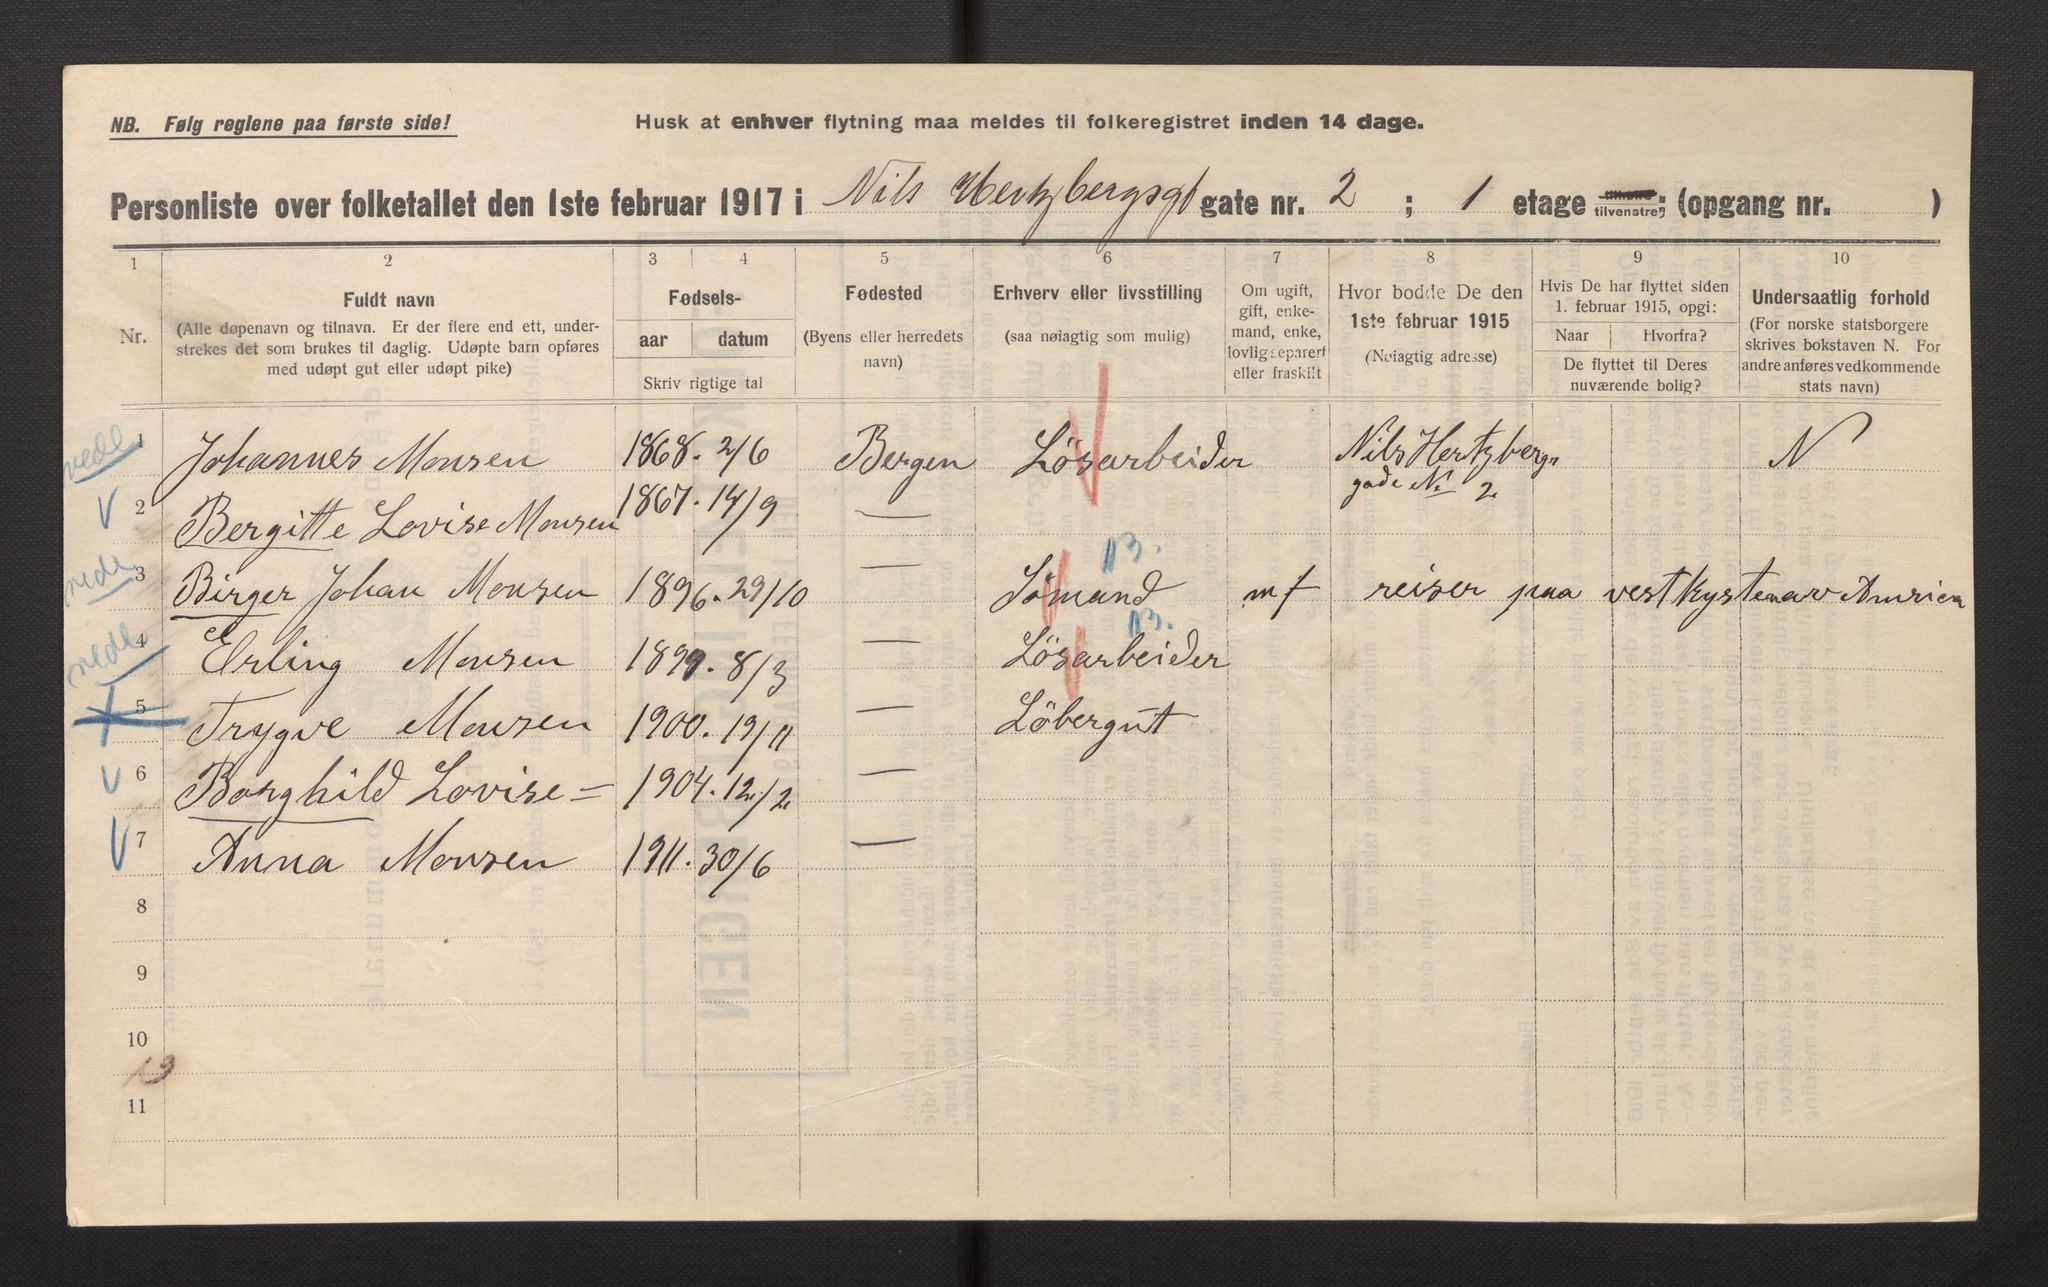 NB. Følg reglene paa første side!
Husk at enhver flytning maa meldes til folkeregistret inden 14 dage.
Personliste over folketallet den 1ste februar 1917 i Nils Hertzbergsgt gate nr. 2 ; 1 etage tilvenstre; (opgang nr. )
1 2 3 4 5 6 7 8 9 10
Nr.
Fuldt navn
(Alle døpenavn og tilnavn. Er der flere end ett, under-
strekes det som brukes til daglig. Udøpte barn opføres
med udøpt gut eller udøpt pike)
Fødsels-
aar datum
Skriv rigtige tal
Fødested
(Byens eller herredets
navn)
Erhverv eller livsstilling
(saa nøiagtig som mulig)
Om ugift,
gift, enke-
mand, enke,
lovlig separert
eller fraskilt
Hvor bodde De den
1ste februar 1915
(Nøiagtig adresse)
Hvis De har flyttet siden
1. februar 1915, opgi:
Naar Hvorfra?
De flyttet til Deres
nuværende bolig?
Undersaatlig forhold
(For norske statsborgere
skrives bokstaven N. For
andre anføres vedkommende
stats navn)
1 Johannes Monsen 1868. 2/6 Bergen Lösarbeider Nils Hertzbergs N
gade No 2
2 Bergitte Lovise Monsen 1867. 14/9 —
13.
3 Birger Johan Monsen 1896. 29/10 — Sömand m f reiser paa vestkysten av America
13.
4 Erling Monsen 1899. 8/3 — Lösarbeider
5 Trygve Monsen 1900. 19/11 — Löbergut
6 Borghild Lovise = 1904. 12/2 —
7 Anna Monsen 1911. 30/6 —
8
9
10
13
11